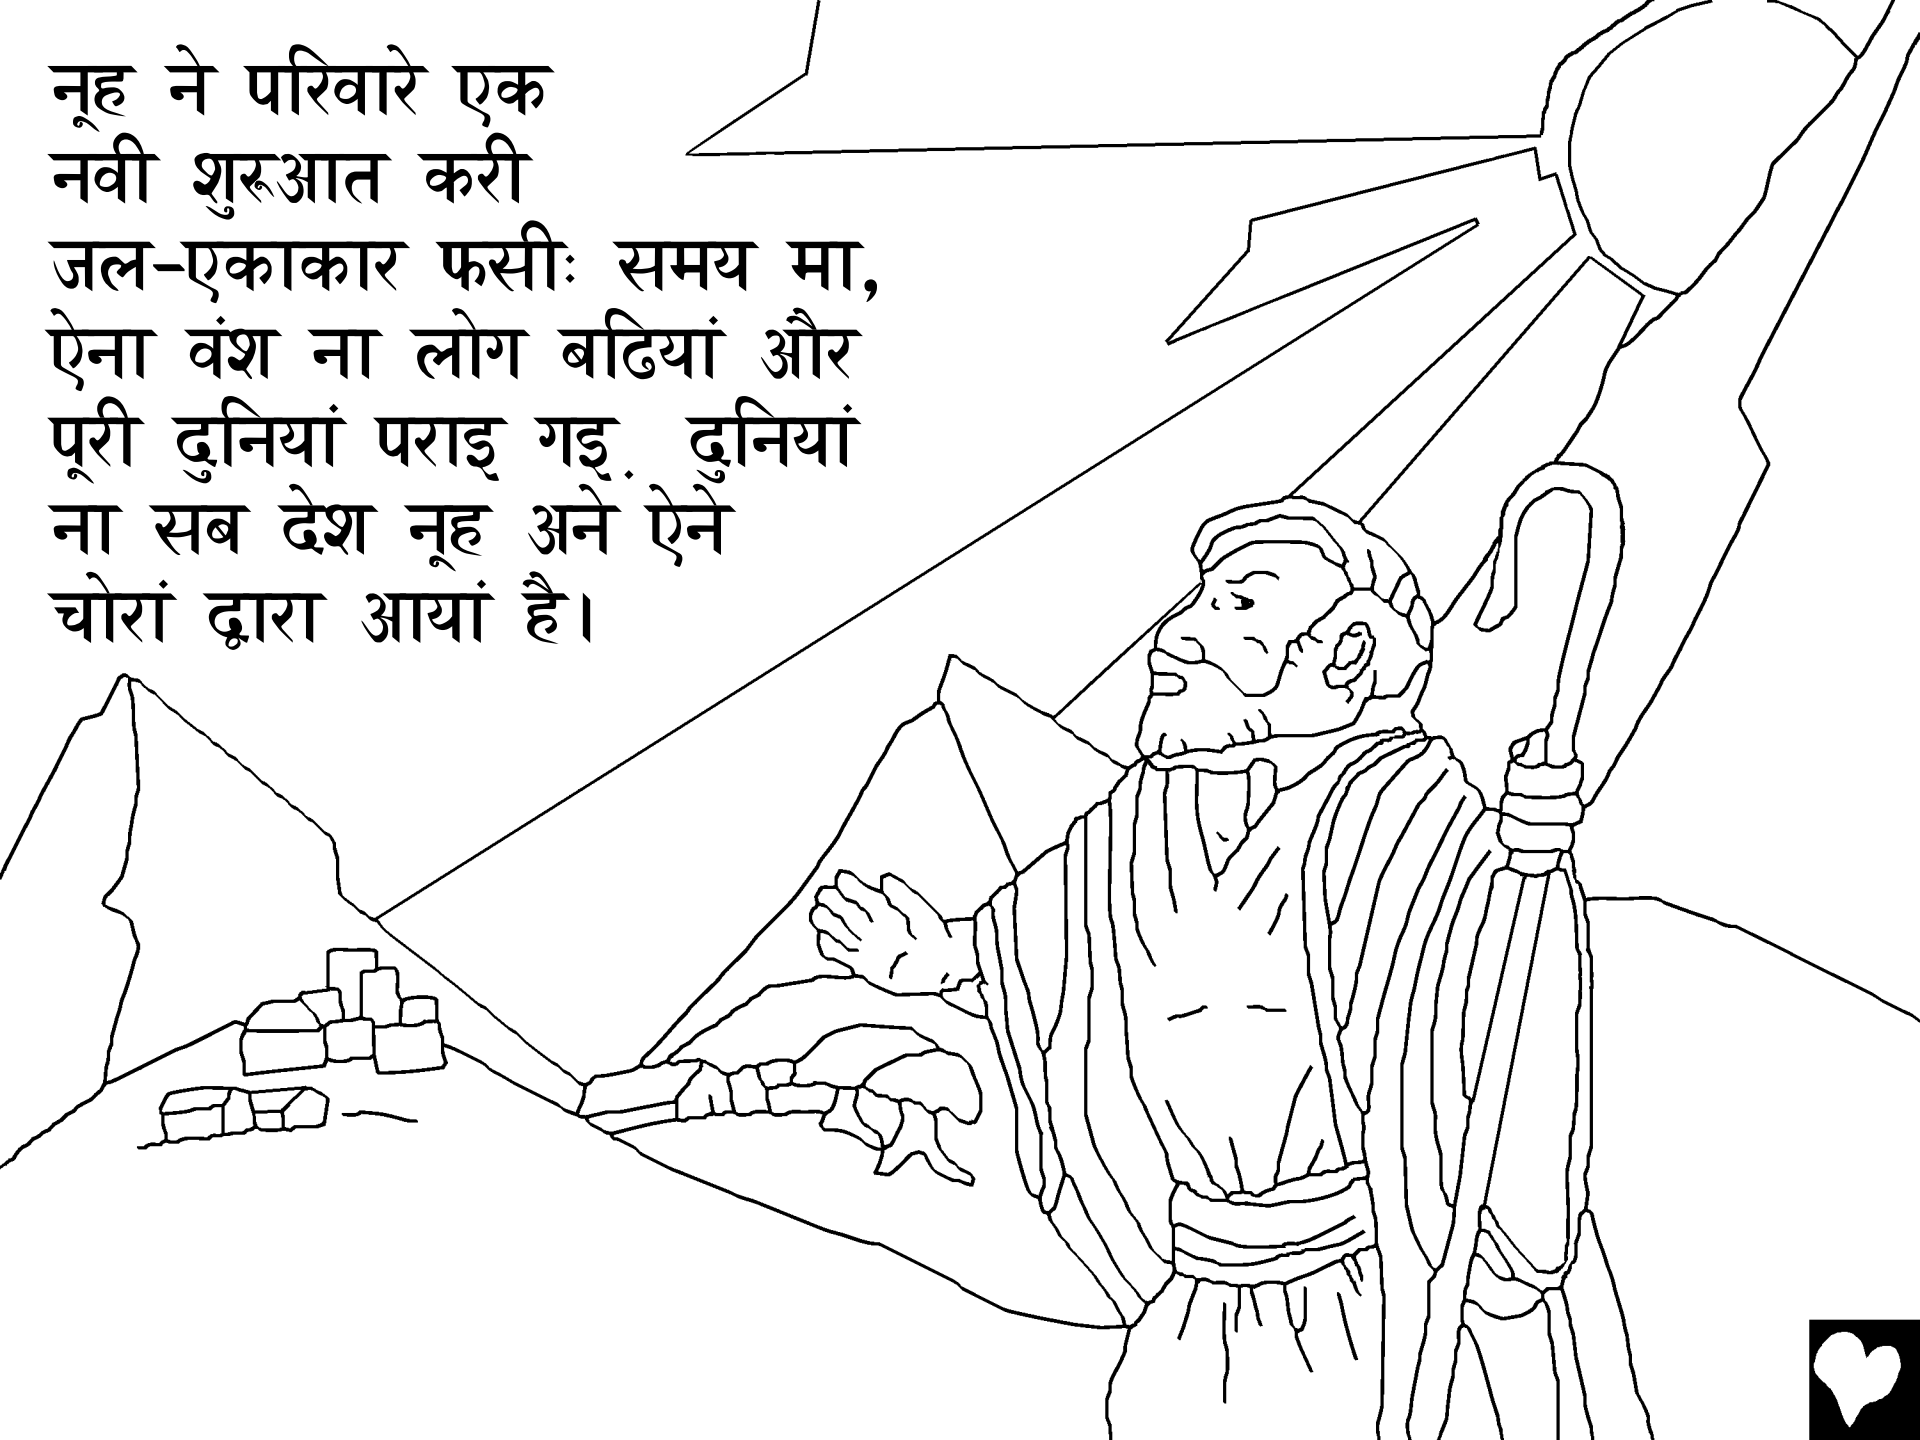 नूह ने परिवारे एक
नवी शुरूआत करी
जल-एकाकार फसीः समय मा,
ऐना वंश ना लोग बढियां और
पूरी दुनियां पराइ गइ. दुनियां
ना सब देश नूह अने ऐने
चोरां द्वारा आयां है।